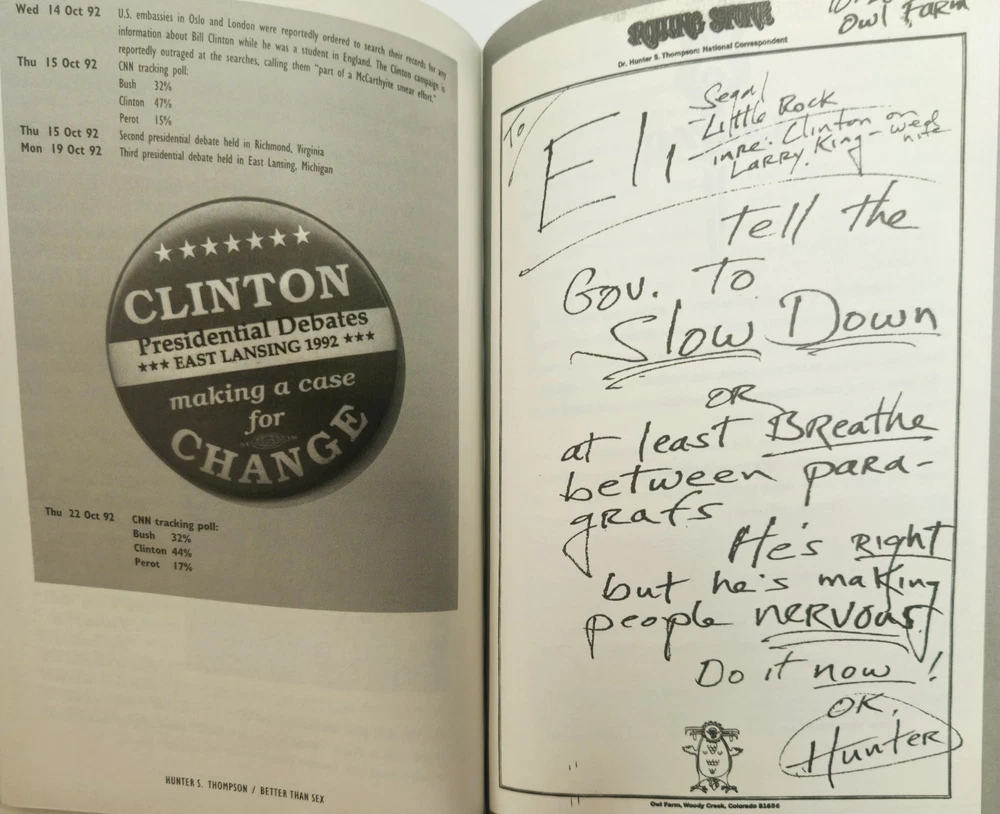 Wed 14 Oct 92 U.S. embassies in Oslo and London were reportedly ordered to search their records for any
information about Bill Clinton while he was a student in England. The Clinton campaign is
reportedly outraged at the searches, calling them "part of a McCarthyite smear effort."
Thu 15 Oct 92 CNN tracking poll:
Bush 32%
Clinton 47%
Perot 15%
Thu 15 Oct 92 Second presidential debate held in Richmond, Virginia
Mon 19 Oct 92 Third presidential debate held in East Lansing, Michigan
CLINTON
Presidential Debates
EAST LANSING 1992
making a case
for
CHANGE
Thu 22 Oct 92 CNN tracking poll:
Bush 32%
Clinton 44%
Perot 17%
HUNTER S. THOMPSON / BETTER THAN SEX
Owl Farm
ROLLING STONE
Dr. Hunter S. Thompson: National Correspondent
To Eli
Segal
Little Rock
in re: Clinton on
Larry King - wed
nite
tell the
Gov. To
Slow Down
OR
at least BReathe
between para-
grafs
He's Right
but he's making
people nervous
Do it now!
OK,
Hunter
Owl Farm, Woody Creek, Colorado 81656